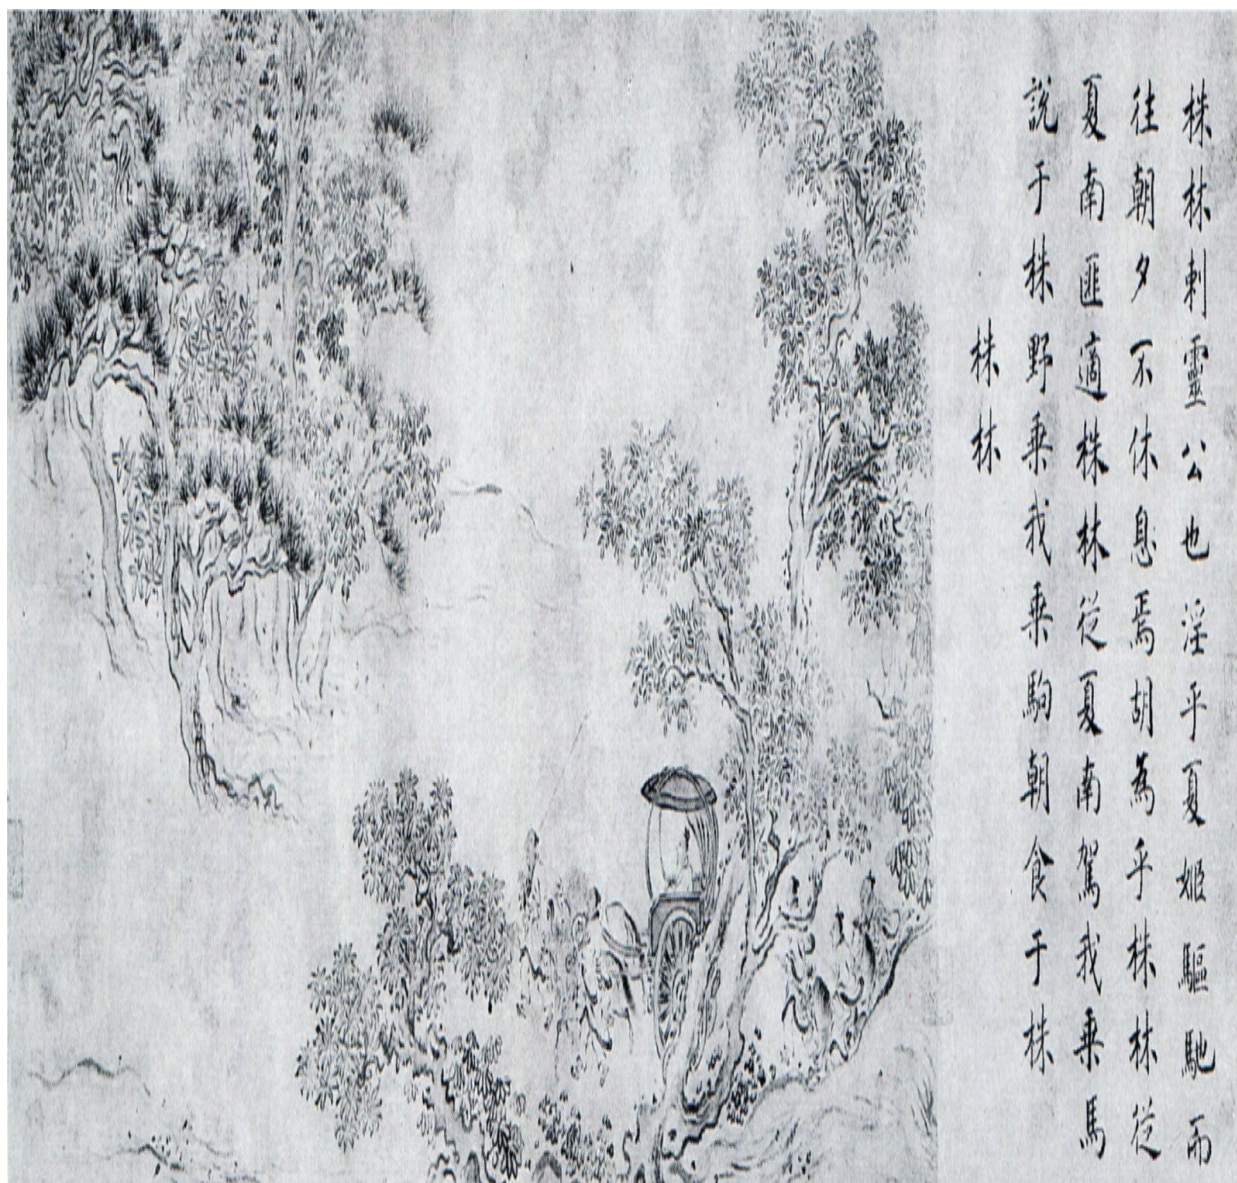 株林刺靈公也淫乎夏姬驅馳而
往朝夕不休息焉胡為乎株林從
夏南匪適株林從夏南駕我乘馬
說于株野乘我乘駒朝食于株
株林